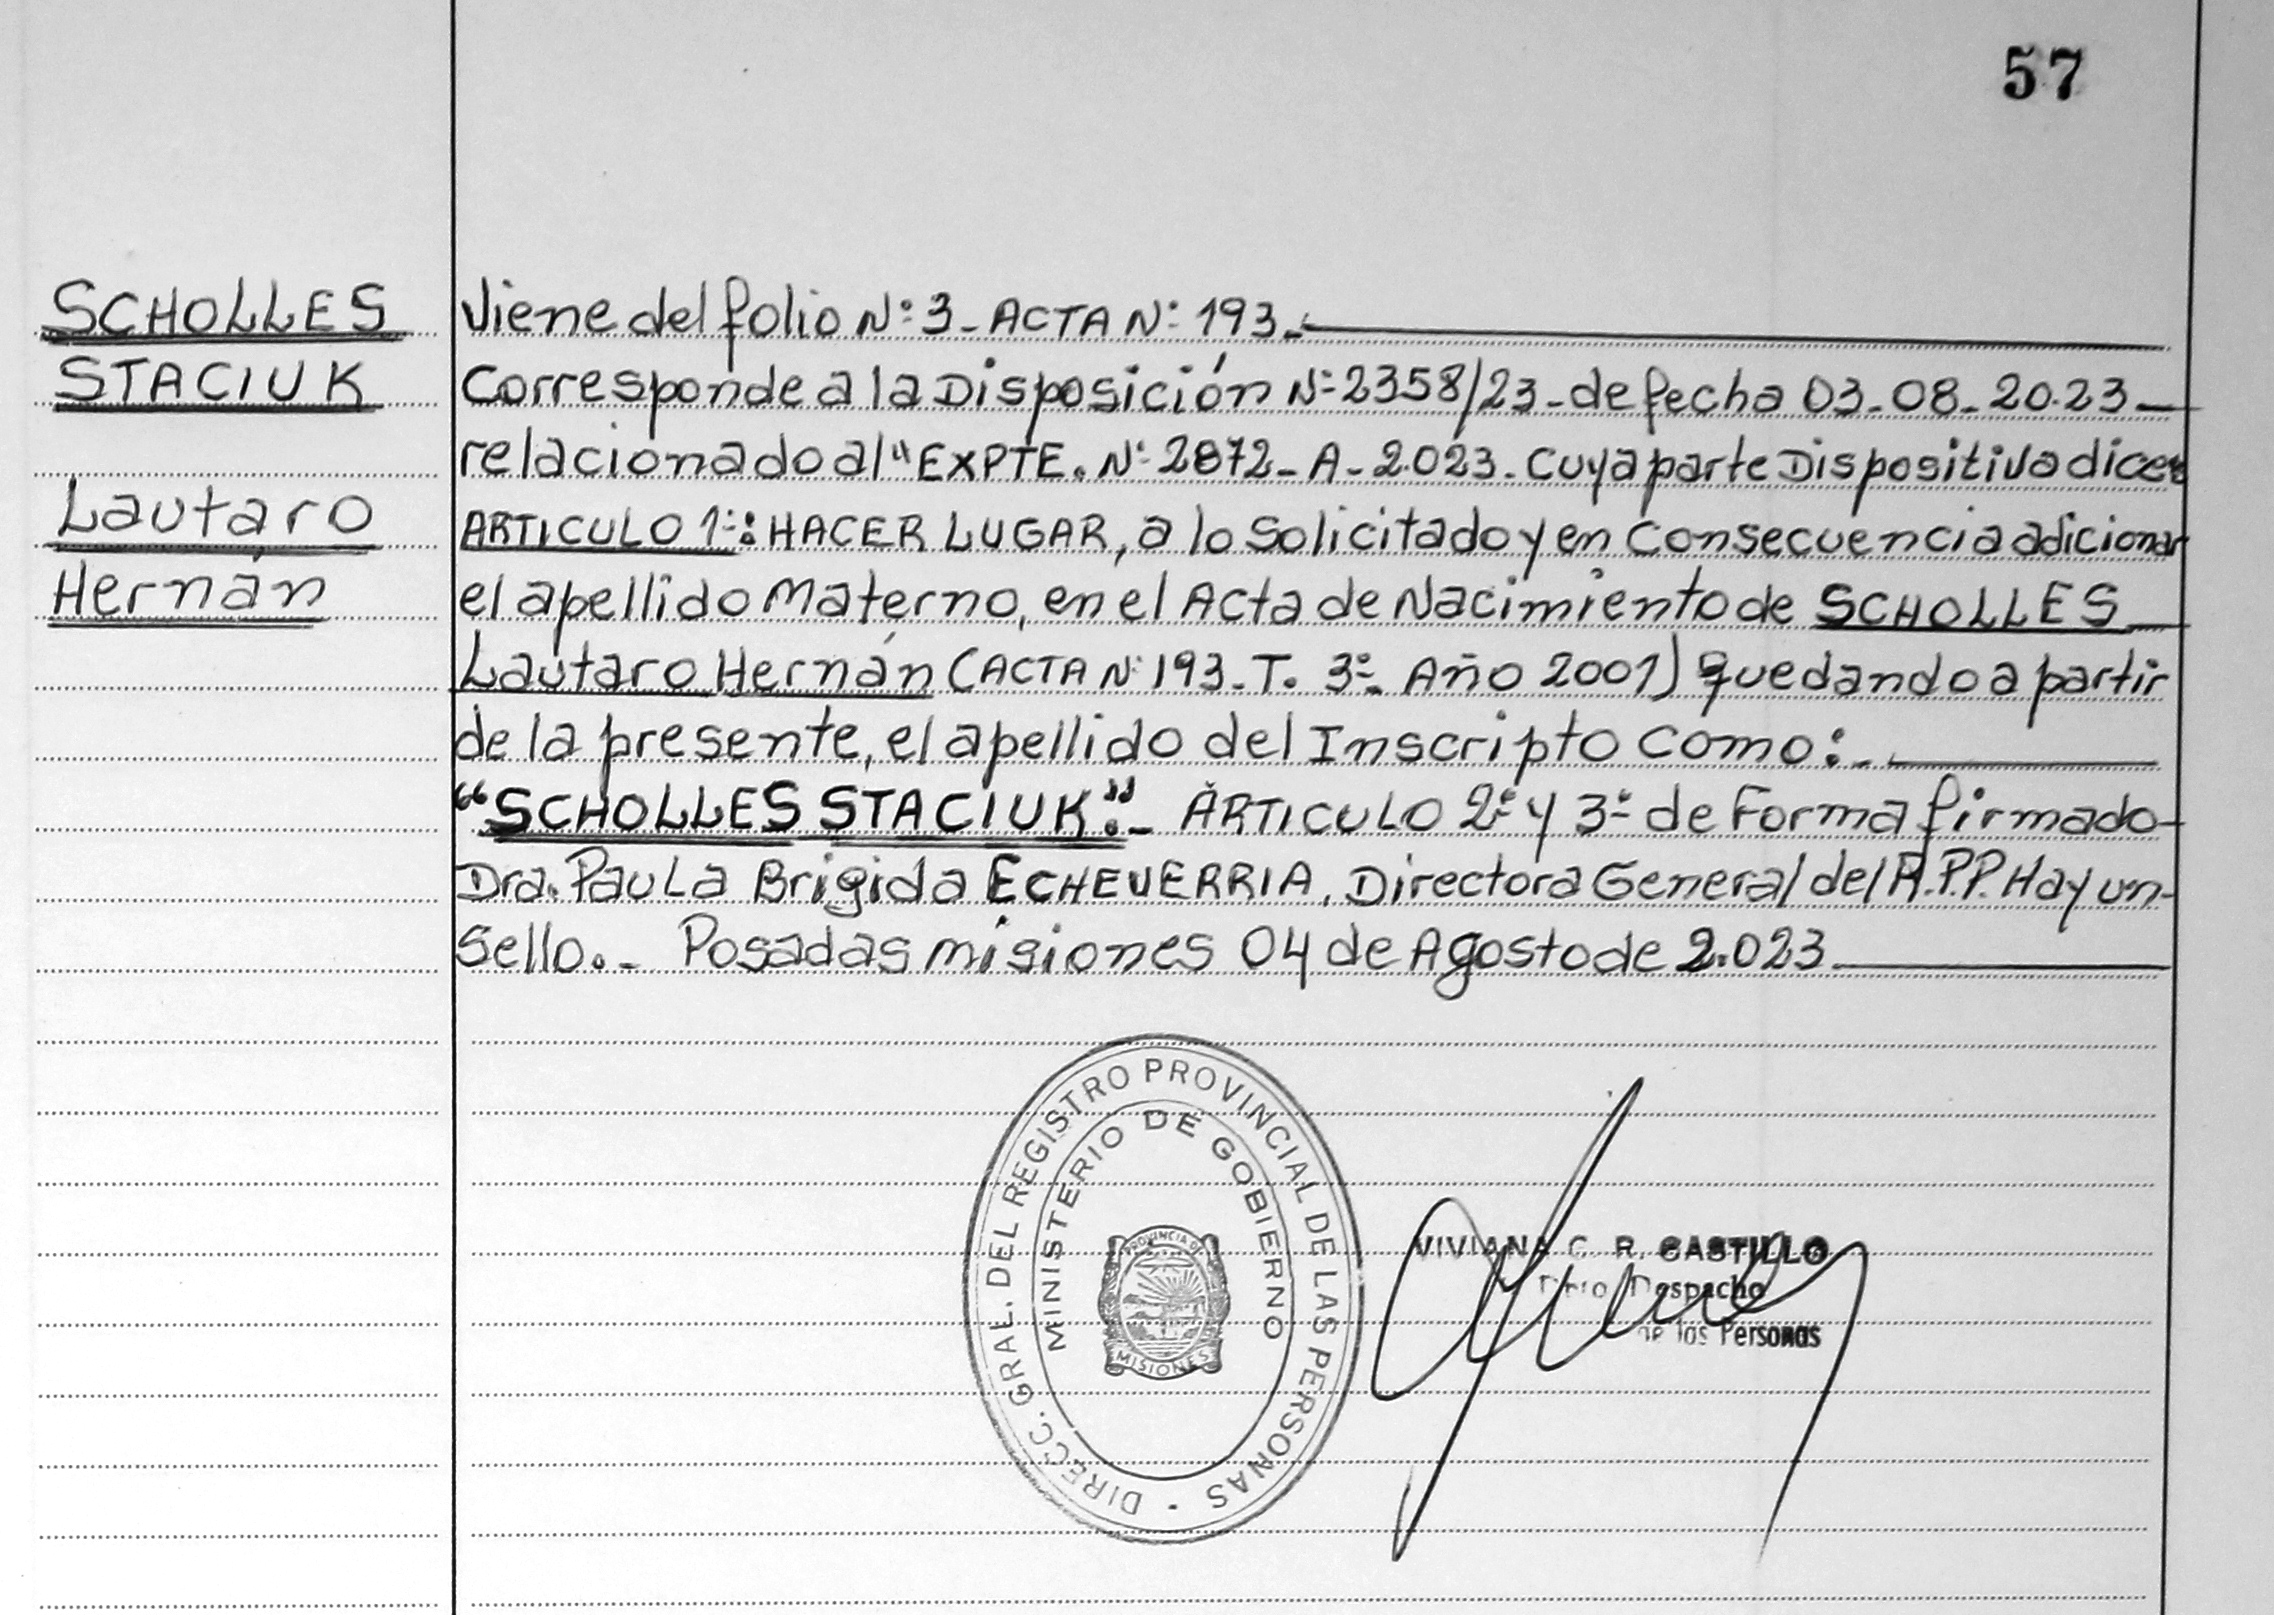 57
SCHOLLES
STACIUK
Lautaro
Hernán
Viene del folio Nº 3 - ACTA Nº 193.-
Corresponde a la Disposición Nº 2358/23 - de fecha 03-08-20.23 —
relacionado al "EXPTE. Nº 2872 - A - 2.023 - Cuya parte Dispositiva dice:
ARTICULO 1º: HACER LUGAR, a lo solicitado y en Consecuencia adicionar
el apellido Materno, en el Acta de Nacimiento de SCHOLLES —
Lautaro Hernán (ACTA Nº 193 - T. 3º - Año 2001) quedando a partir
de la presente, el apellido del Inscripto Como: -
"SCHOLLES STACIUK".- ARTICULO 2º y 3º de Forma firmado -
Dra. Paula Brigida ECHEVERRIA, Directora General del R.P.P. Hay un -
Sello. - Posadas misiones 04 de Agosto de 2.023
DIRECC. GRAL. DEL REGISTRO PROVINCIAL DE LAS PERSONAS -
MINISTERIO DE GOBIERNO
PROVINCIA DE
MISIONES
VIVIANA C. R. CASTILLO
Despacho
de las Personas